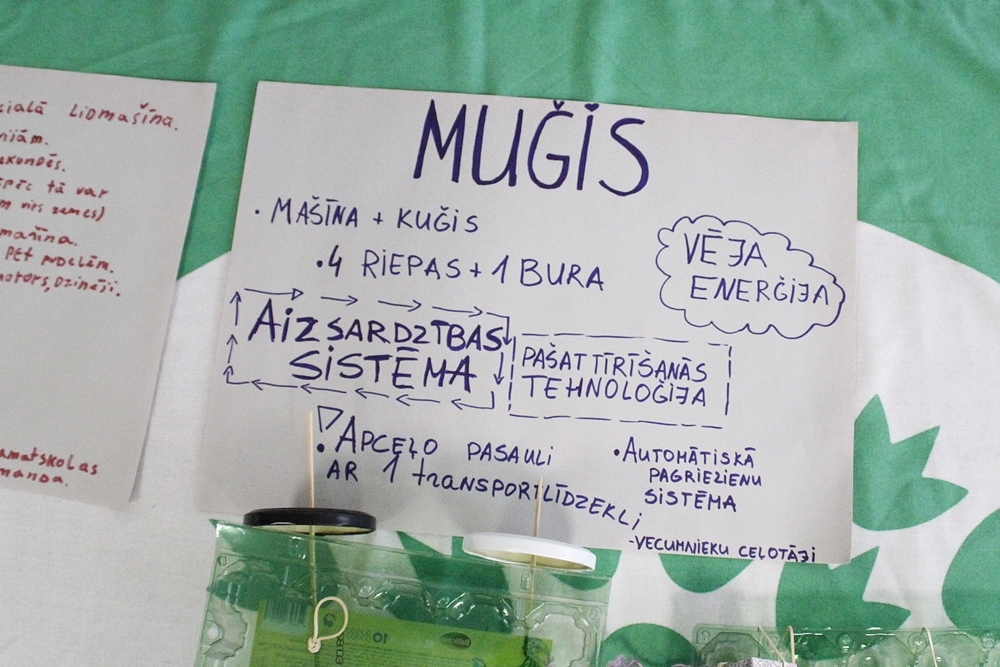 LIDMAŠĪNA.
tā var
virs zemes)
PET pudelēm.
motors, Dzinēji.
MUĢIS
• MAŠĪNA + KUĢIS
• 4 RIEPAS + 1 BURA
VĒJA
ENERĢIJA
AIZSARDZĪBAS
SISTĒMA
PAŠATTĪRĪŠANĀS
TEHNOLOĢIJA
! APCEĻO PASAULI
AR 1 TRANSPORTLĪDZEKLI
• AUTOMĀTISKĀ
PAGRIEZIENU
SISTĒMA
- VECUMNIEKU CEĻOTĀJI
10